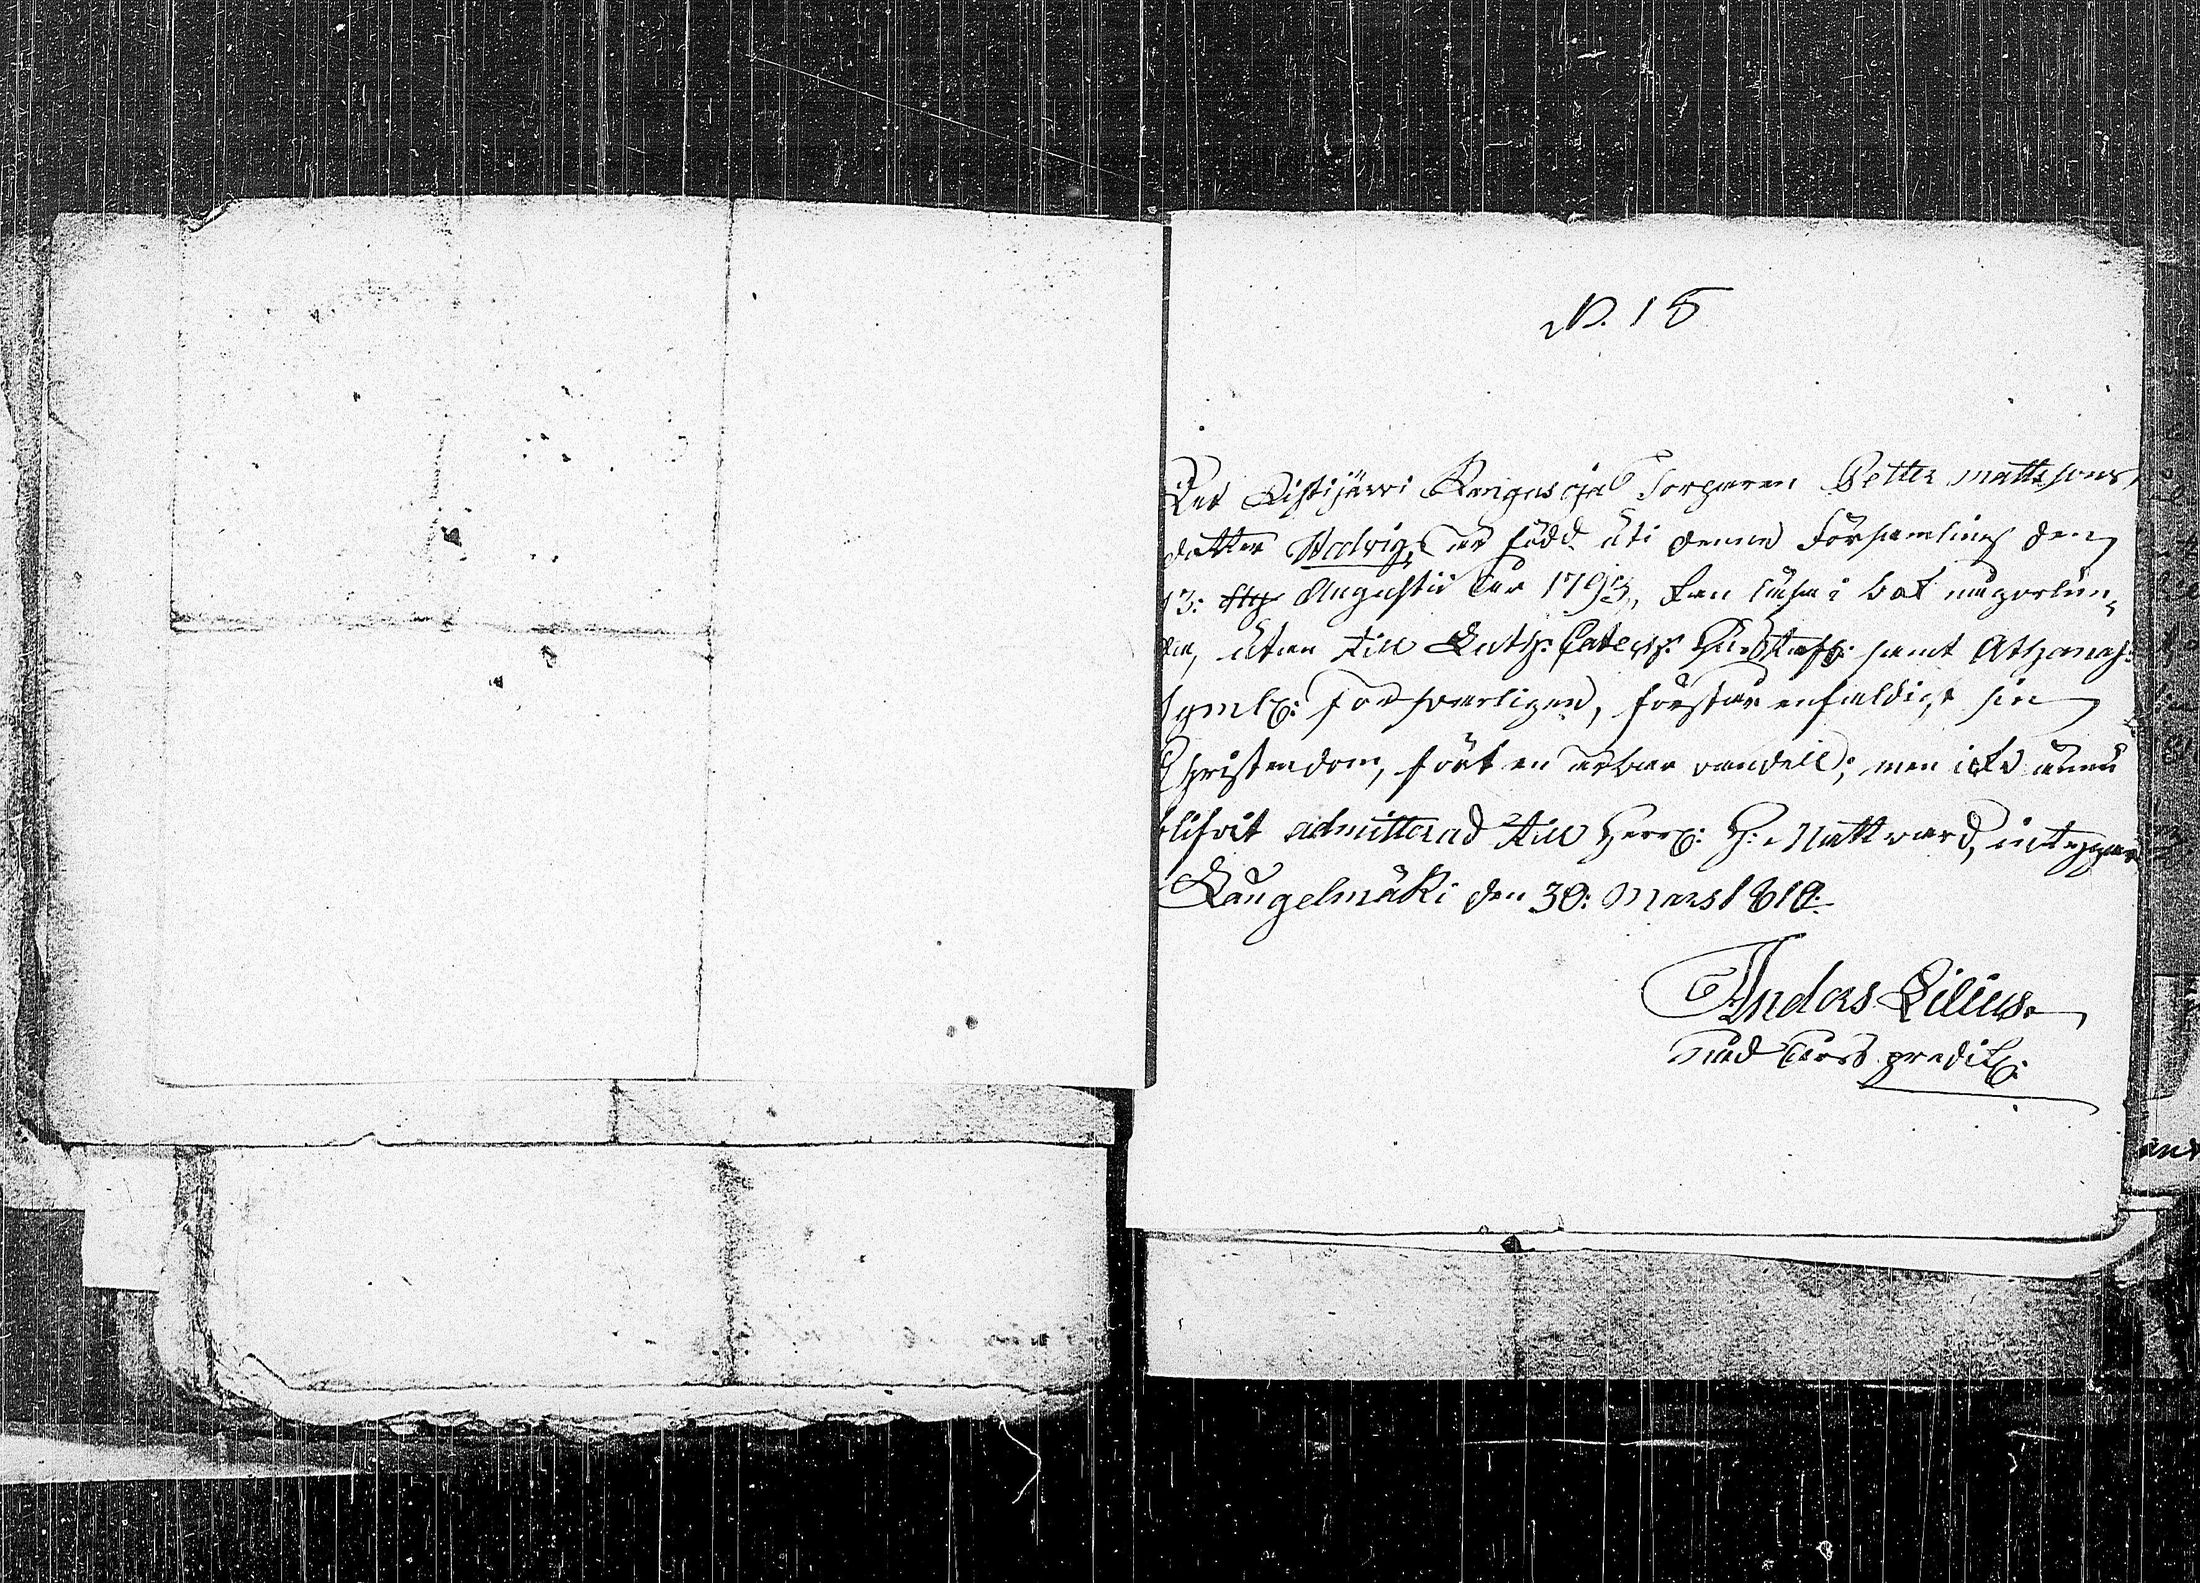 N. 15
Det Listijärvi Kangas ojal Torparen Petter Mattssons
dotter Hedvig, är född uti denne Församling den
13: Augustii År 1793, kan läsa i bok någorlun-
da, utan till Luth: Cateches: Hustafl: samt Athanas:
Symb: försvarligen, förstår enfaldigt sin
Christendom, fört en ärbar vandell; men icke ännu
blifvit admitterad till Herr: H: Nattvard, intygar
Laugelmäki den 30: Mars 1810.
Anders Lilius.
Nåd Års predik: